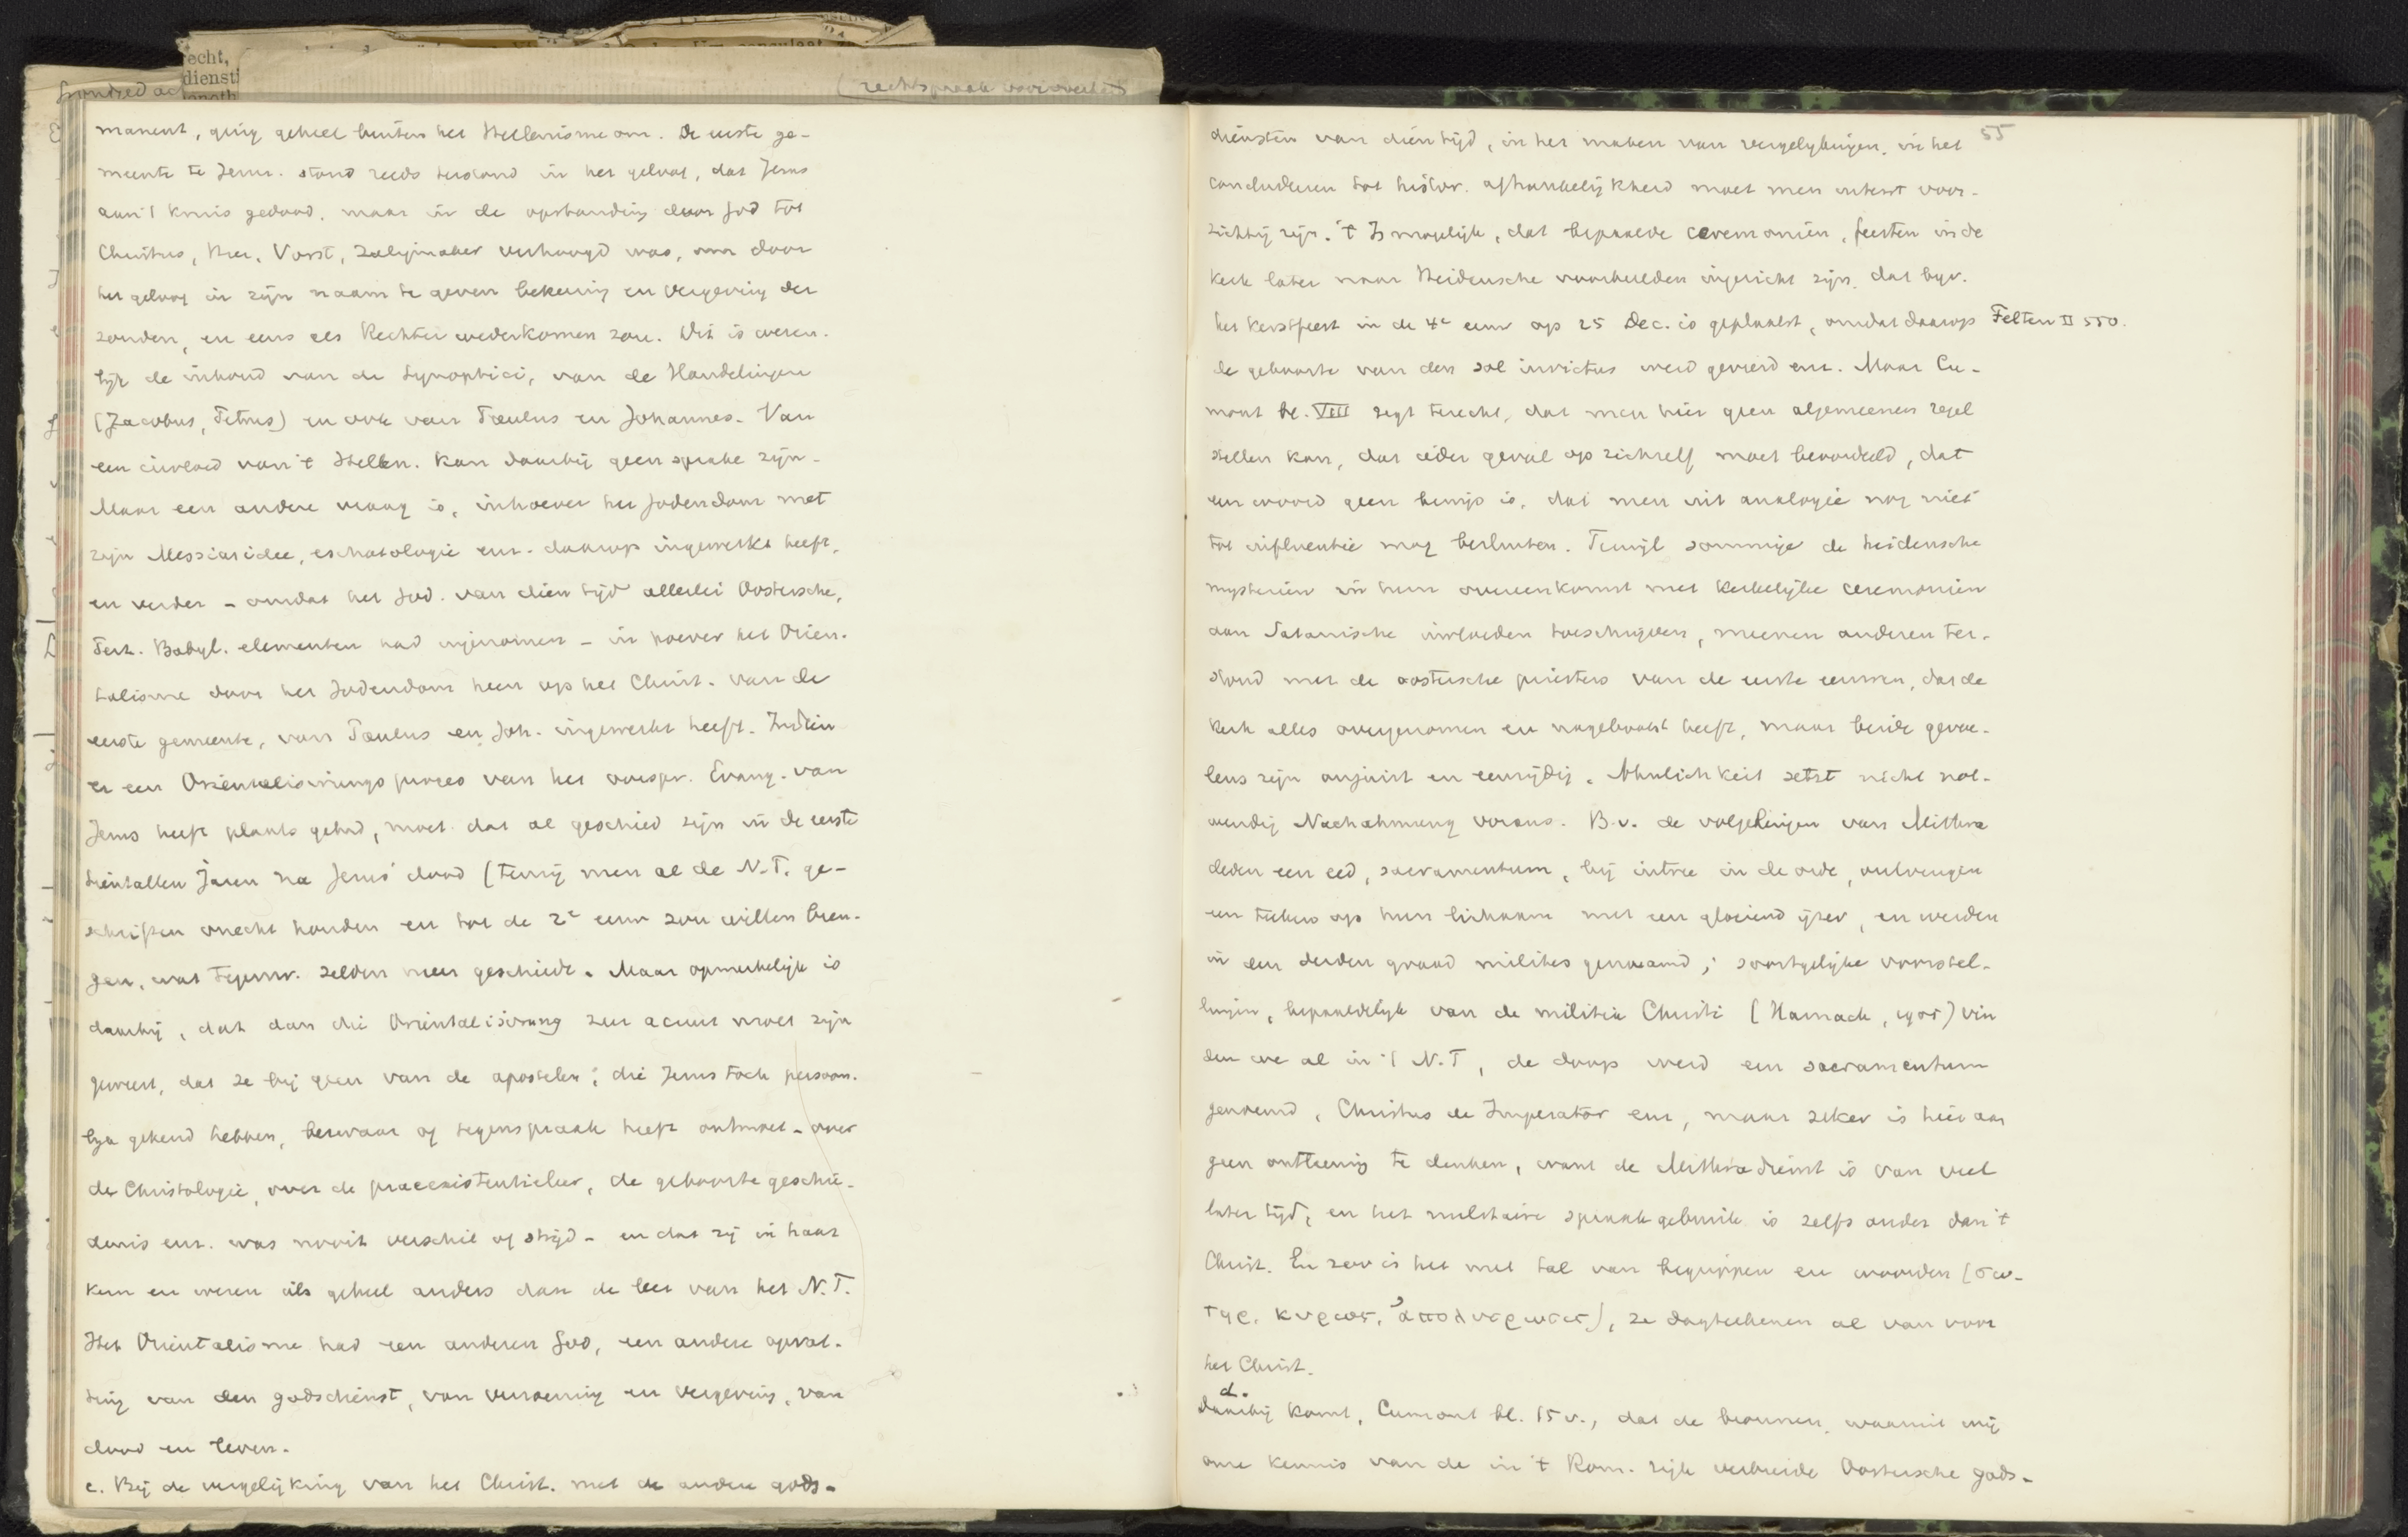 echt,
dienst
(rechtspraak
manent, ging geheel buiten het Hellenisme om. De eerste ge-
meente te Jeruz. stond reeds terstond in het geloof, dat Jezus
aan 't kruis gedood, maar in de opstanding door God tot
Christus, Heer, Vorst, Zaligmaker verhoogd was, om door
het geloof in zijn naam te geven bekeering en vergeving der
zonden, en eens als Rechter wederkomen zou. Dit is wezen-
lijk de inhoud van de Synoptici, van de Handelingen
(Jacobus, Petrus) en ook van Paulus en Johannes. Van
een invloed van 't Hellen. kan daarbij geen sprake zijn.
Maar een andere vraag is, inhoever het Jodendom met
zijn Messiasidee, eschatologie enz. daarop ingewerkt heeft,
en verder - omdat het Jod. van dien tijd allerlei Oostersche,
Perz. Babyl. elementen had ingenomen - in hoever het Orien-
talisme door het Jodendom heen op het Christ. van de
eerste gemeente, van Paulus en Joh. ingewerkt heeft. Indien
er een Orientaliseringsproces van het oorspr. Evang. van
Jezus heeft plaats gehad, moet dat al geschied zijn in de eerste
tientallen jaren na Jezus' dood (tenzij men al de N.T. ge-
schriften onecht houden en tot de 2e eeuw zou willen bren-
gen, wat tegenw. zelden meer geschiedt. Maar opmerkelijk is
daarbij, dat dan die Orientalisirung zeer acuut moet zijn
geweest, dat ze bij geen van de apostelen, die Jezus toch persoon-
lijk gekend hebben, bezwaar of tegenspraak heeft ontmoet - over
de Christologie, over de praeexistentieleer, de geboortegeschie-
denis enz. was nooit verschil of strijd - en dat zij in haar
kern en wezen iets geheel anders dan de leer van het N.T.
Het Orientalisme had een anderen God, een andere opvat-
ting van den godsdienst, van verzoening en vergeving, van
dood en leven.
c. Bij de vergelijking van het Christ. met de andere gods-
55
diensten van dien tijd, in het maken van vergelijkingen, in het
concluderen tot histor. afhankelijkheid moet men uiterst voor-
zichtig zijn. 't Is mogelijk, dat bepaalde ceremoniën, feesten in de
kerk later naar Heidensche voorbeelden ingericht zijn, dat bijv.
het Kerstfeest in de 4e eeuw op 25 Dec. is geplaatst, omdat daarop Felten II 550.
de geboorte van den sol invictus werd gevierd enz. Maar Cu-
mont bl. VIII zegt terecht, dat men hier geen algemeenen regel
stellen kan, dat ieder geval op zichzelf moet beoordeeld, dat
een woord geen bewijs is, dat men uit analogie nog niet
tot influentie mag besluiten. Terwijl sommige de heidensche
mysteriën in hun overeenkomst met kerkelijke ceremoniën
aan Satanische invloeden toeschrijven, meenen anderen ter-
stond met de oostersche priesters van de eerste eeuwen, dat de
kerk alles overgenomen en nagebootst heeft, maar beide gevoe-
lens zijn onjuist en eenzijdig. Ähnlichkeit setzt nicht not-
wendig Nachahmung voraus. B.v. de volgelingen van Mithra
deden een eed, sacramentum, bij intree in de orde, ontvingen
een teeken op hun lichaam met een gloeiend ijzer, en werden
in den derden graad milites genaamd; soortgelijke voorstel-
lingen, bepaaldelijk van de militia Christi (Harnack, 1905) vin
den we al in 't N.T, de doop werd een sacramentum
genoemd, Christus de Imperator enz, maar zeker is hier aan
geen ontleening te denken, want de Mithradienst is van veel
later tijd, en het militaire spraakgebruik is zelfs ouder dan 't
Christ. En zoo is het met tal van begrippen en woorden (σω-
τηρ, κυριος, ἀπολυτρωσις), ze dagteekenen al van voor
het Christ.
d.
Daarbij komt, Cumont bl. 15 v., dat de bronnen, waaruit wij
onze kennis van de in 't Rom. rijk verbreide Oostersche gods-